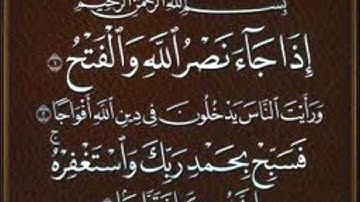 بِسْمِ اللَّهِ الرَّحْمَٰنِ الرَّحِيمِ
إِذَا جَاءَ نَصْرُ اللَّهِ وَالْفَتْحُ ١
وَرَأَيْتَ النَّاسَ يَدْخُلُونَ فِي دِينِ اللَّهِ أَفْوَاجًا ٢
فَسَبِّحْ بِحَمْدِ رَبِّكَ وَاسْتَغْفِرْهُ ۚ